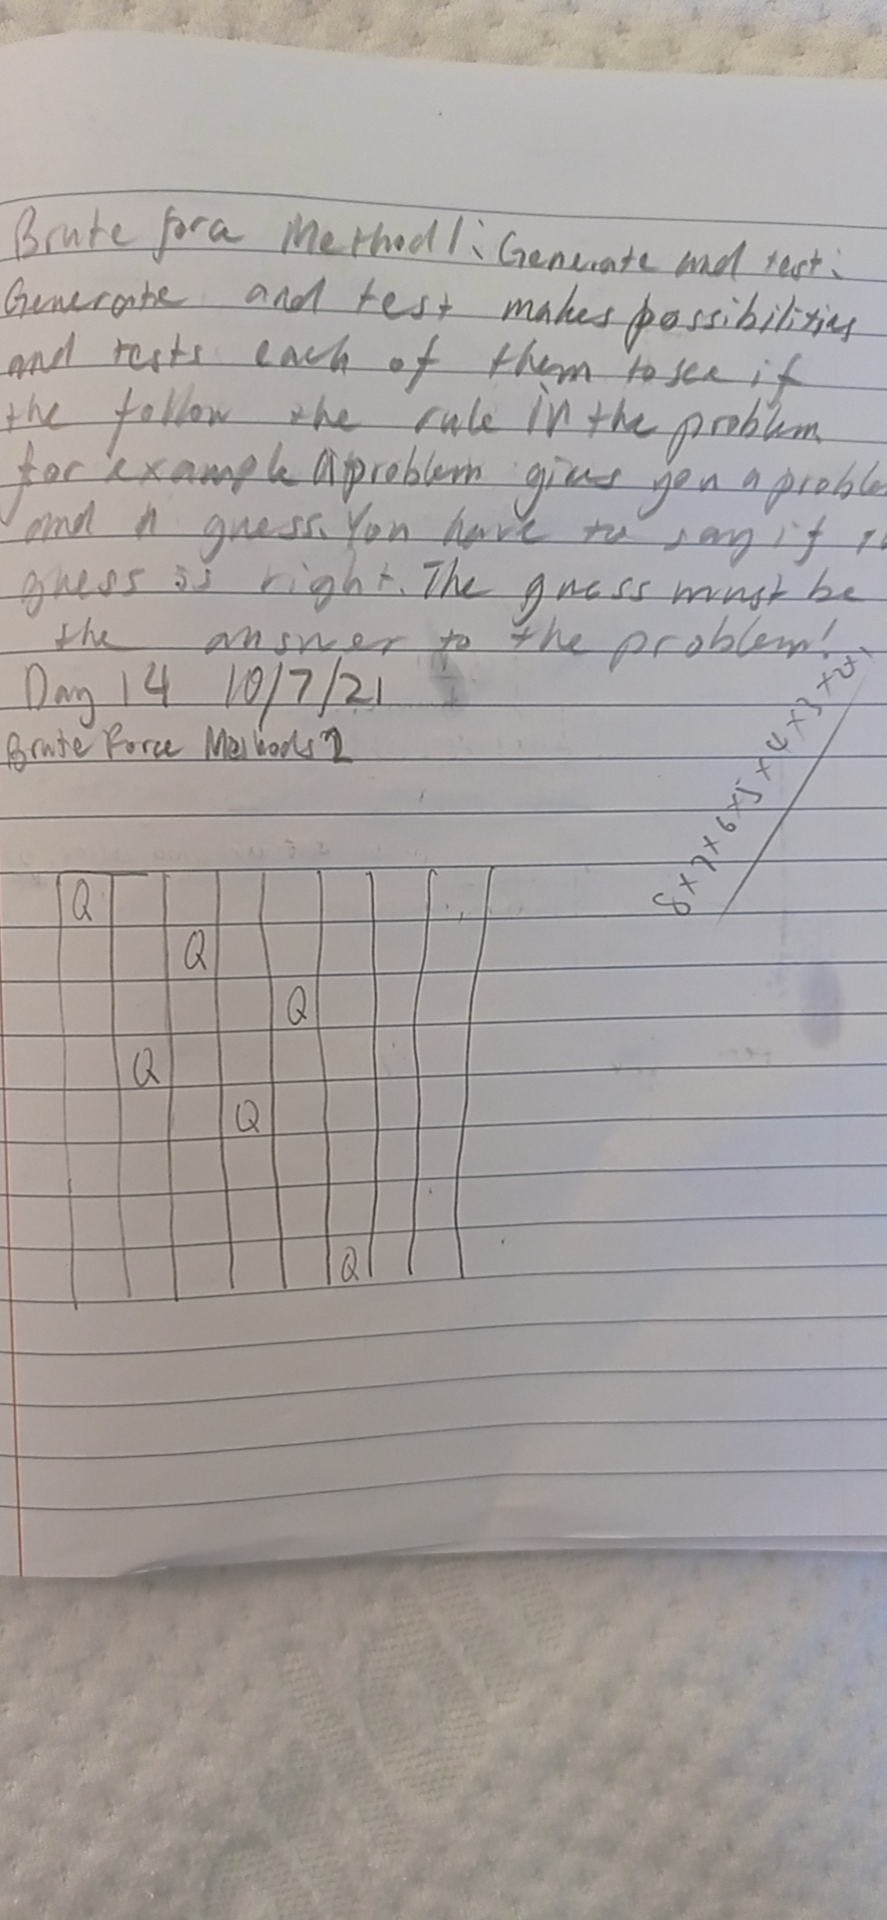 Brute force Method 1: Generate and test:
Generate and test makes possibilities
and tests each of them to see if
the follow the rule in the problem
for example A problem gives you a proble
and a guess. You have to say if
guess is right. The guess must be
the answer to the problem!
Day 14 10/7/21
Brute Force Methods 2
8x7x6x5x4x3x2x1
Q
Q
Q
Q
Q
Q